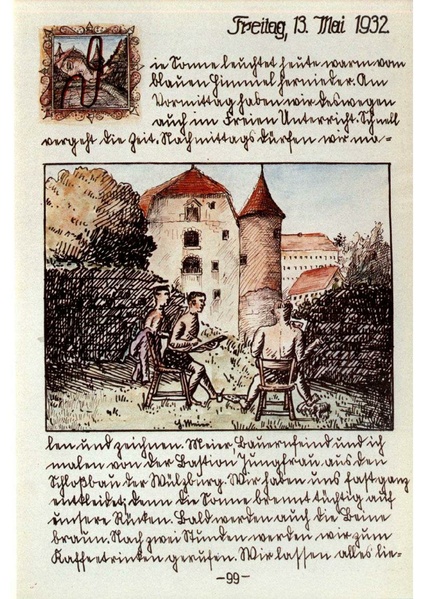 Freitag, 13. Mai 1932.
Die Sonne leuchtet heute warm vom
blauen Himmel hernieder. Am
Vormittag haben wir deswegen
auch im Freien Unterricht. Schnell
vergeht die Zeit. Nachmittags dürfen wir ma-
G. Meier.
len und zeichnen. Meier, Bauernfeind und ich
malen von der Bastion Jungfrau aus den
Schloßbau der Wülzburg. Wir haben uns fast ganz
entkleidet; denn die Sonne brennt tüchtig auf
unsere Rücken. Bald werden auch die Beine
braun. Nach zwei Stunden werden wir zum
Kaffeetrinken gerufen. Wir lassen alles lie-
-99-